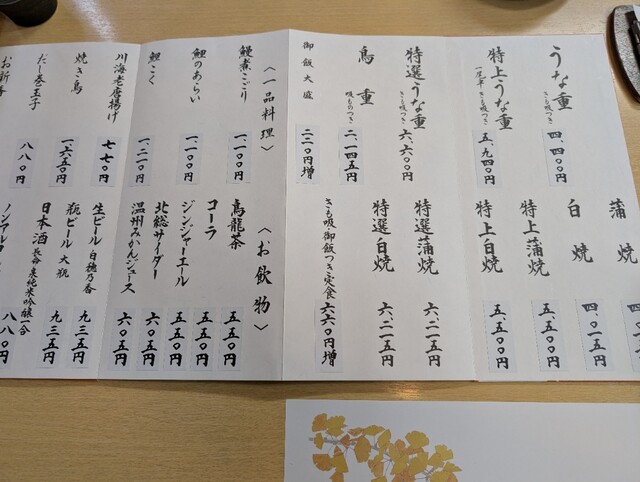 うな重
きも吸つき
四、四〇〇円
特上うな重
一尾半 きも吸つき
五、九四〇円
特選うな重
きも吸つき
六、六〇〇円
鳥重
吸ものつき
二、一四五円
御飯大盛
二二〇円増
蒲焼
白焼
四、〇一五円
特上蒲焼
五、五〇〇円
特上白焼
五、五〇〇円
特選蒲焼
六、二一五円
特選白焼
六、二一五円
きも吸御飯つき定食
六六〇円増
〈一品料理〉
鰻煮こごり
一、一〇〇円
鯉のあらい
一、一〇〇円
鯉こく
一、二一〇円
川海老唐揚げ
七七〇円
焼き鳥
一、六五〇円
だし巻玉子
八八〇円
お新香
〈お飲物〉
烏龍茶
五五〇円
コーラ
五五〇円
ジンジャーエール
五五〇円
北総サイダー
六〇五円
温州みかんジュース
六〇五円
生ビール 白穂乃香
九三五円
瓶ビール 大瓶
九三五円
日本酒 長命泉純米吟醸一合
八八〇円
ノンアル